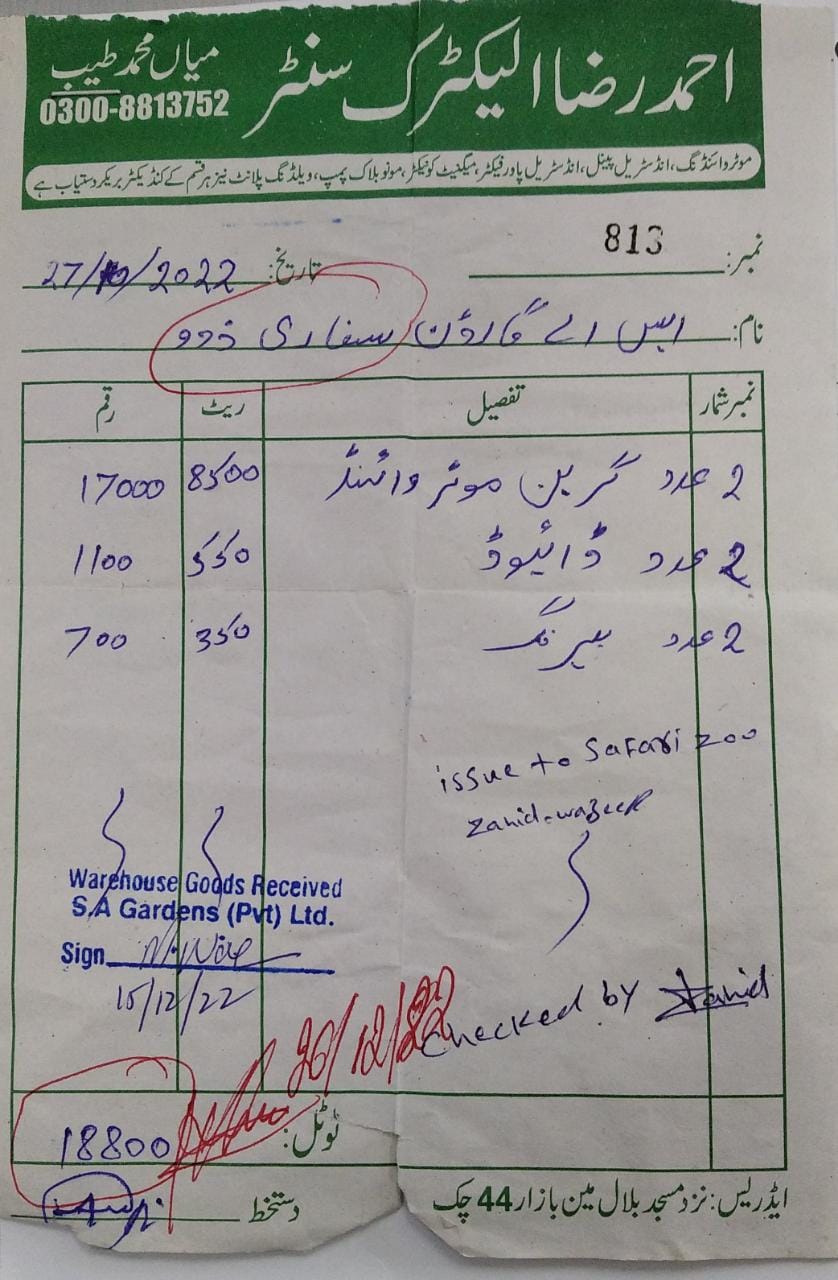 احمد رضا الیکٹرک سنٹر
میاں محمد طیب
0300-8813752
موٹر وائنڈنگ، انڈسٹریل پینل، انڈسٹریل پاور فیکٹر، میگنیٹ کونیکٹر، مونو بلاک پمپ، ویلڈنگ پلانٹ نیز ہر قسم کے کنڈیکٹر بریکر دستیاب ہے
نمبر: 813
تاریخ: 27/10/2022
نام: ایس اے گارڈن سفاری ذوو
نمبر شمار تفصیل ریٹ رقم
2 عدد گرین موٹر وائنڈ 8500 17000
2 عدد ڈائیوڈ 550 1100
2 عدد بیرنگ 350 700
issue to Safari zoo
zahid-wazeer
Warehouse Goods Received
S.A Gardens (Pvt) Ltd.
Sign
15/12/22
20/12/22
checked by Zahid
ٹوٹل: 18800
دستخط
ایڈریس: نزد مسجد بلال مین بازار 44 چک